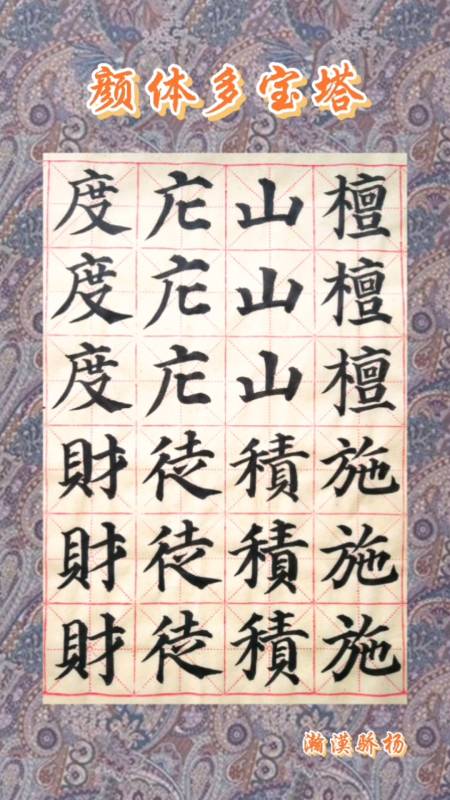 颜体多宝塔
檀檀檀施施施
山山山積積積
庀庀庀徒徒徒
度度度財財財
瀚漠骄杨